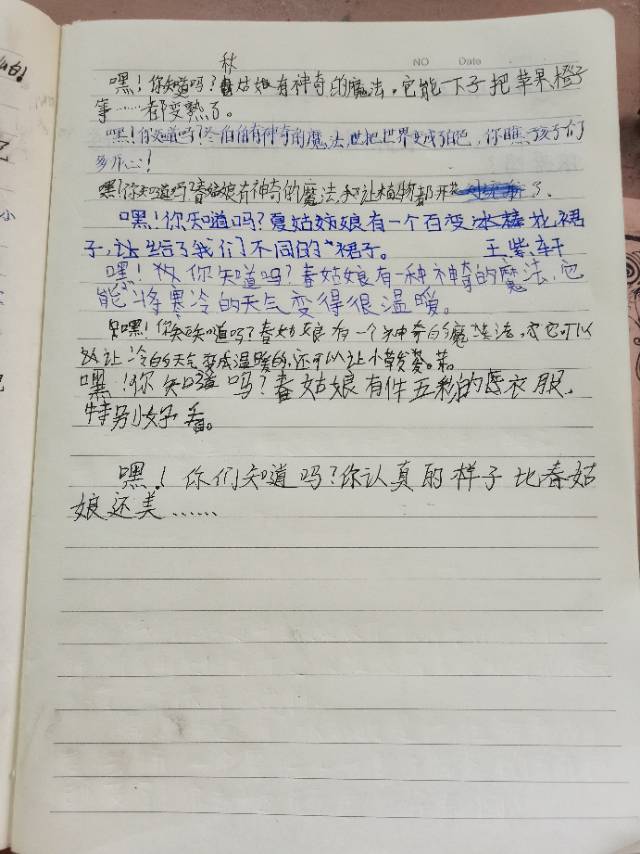 NO Date
秋
嘿!你知道吗?姑娘有神奇的魔法。它能一下子把苹果橙子
等……都变熟了。
嘿!你知道吗?冬伯伯有神奇的魔法,世把世界变成了白色,你瞧孩子们
多开心!
嘿!你知道吗?春姑娘有神奇的魔法,可让植物都开花了。
嘿!你知道吗?夏姑姑娘有一个百变花裙
子,让给了我们不同的裙子。 王紫轩
嘿!你知道吗?春姑娘有一种神奇的魔法,它
能将寒冷的天气变得很温暖。
嘿!你知道吗?春姑娘有一个神奇的魔法,它可以
让冷的天气变成温暖的,还可以让小草发芽。
嘿!你知道吗?春姑娘有件五彩的衣服,
特别好看。
嘿!你们知道吗?你认真的样子比春姑
娘还美……